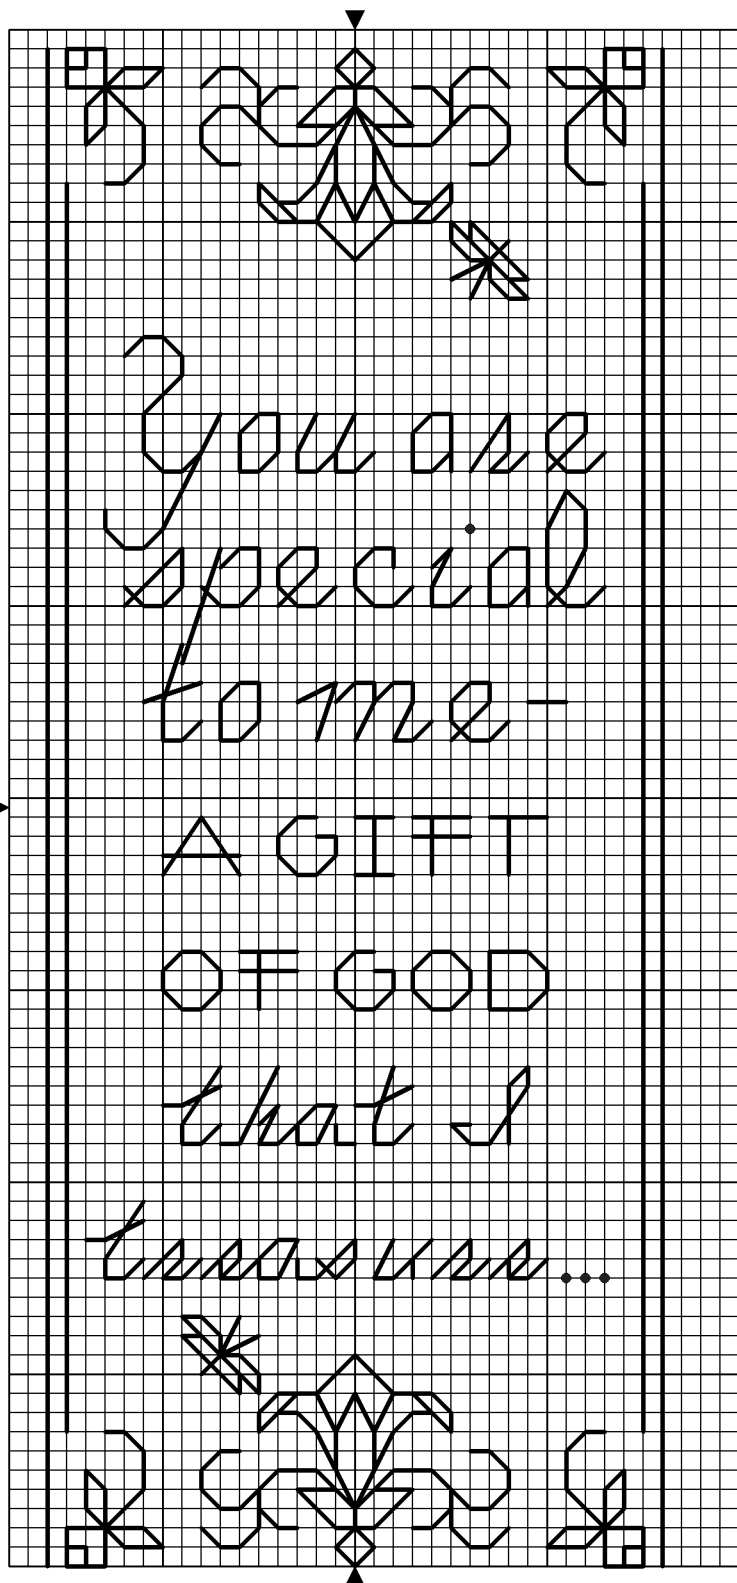 You are
special
to me-
A GIFT
OF GOD
that I
treasure...